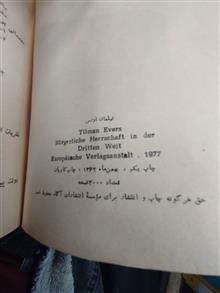 تیلمان اورس
Tilman Evers
Bürgerliche Herrschaft in der
Dritten Welt
Europäische Verlagsanstalt, 1977
چاپ یکم، بهمن‌ماه ۱۳۶۲، چاپ کاویان
تعداد ۳۰۰۰ نسخه
حق هرگونه چاپ و انتشار برای مؤسسهٔ انتشارات آگاه محفوظ است